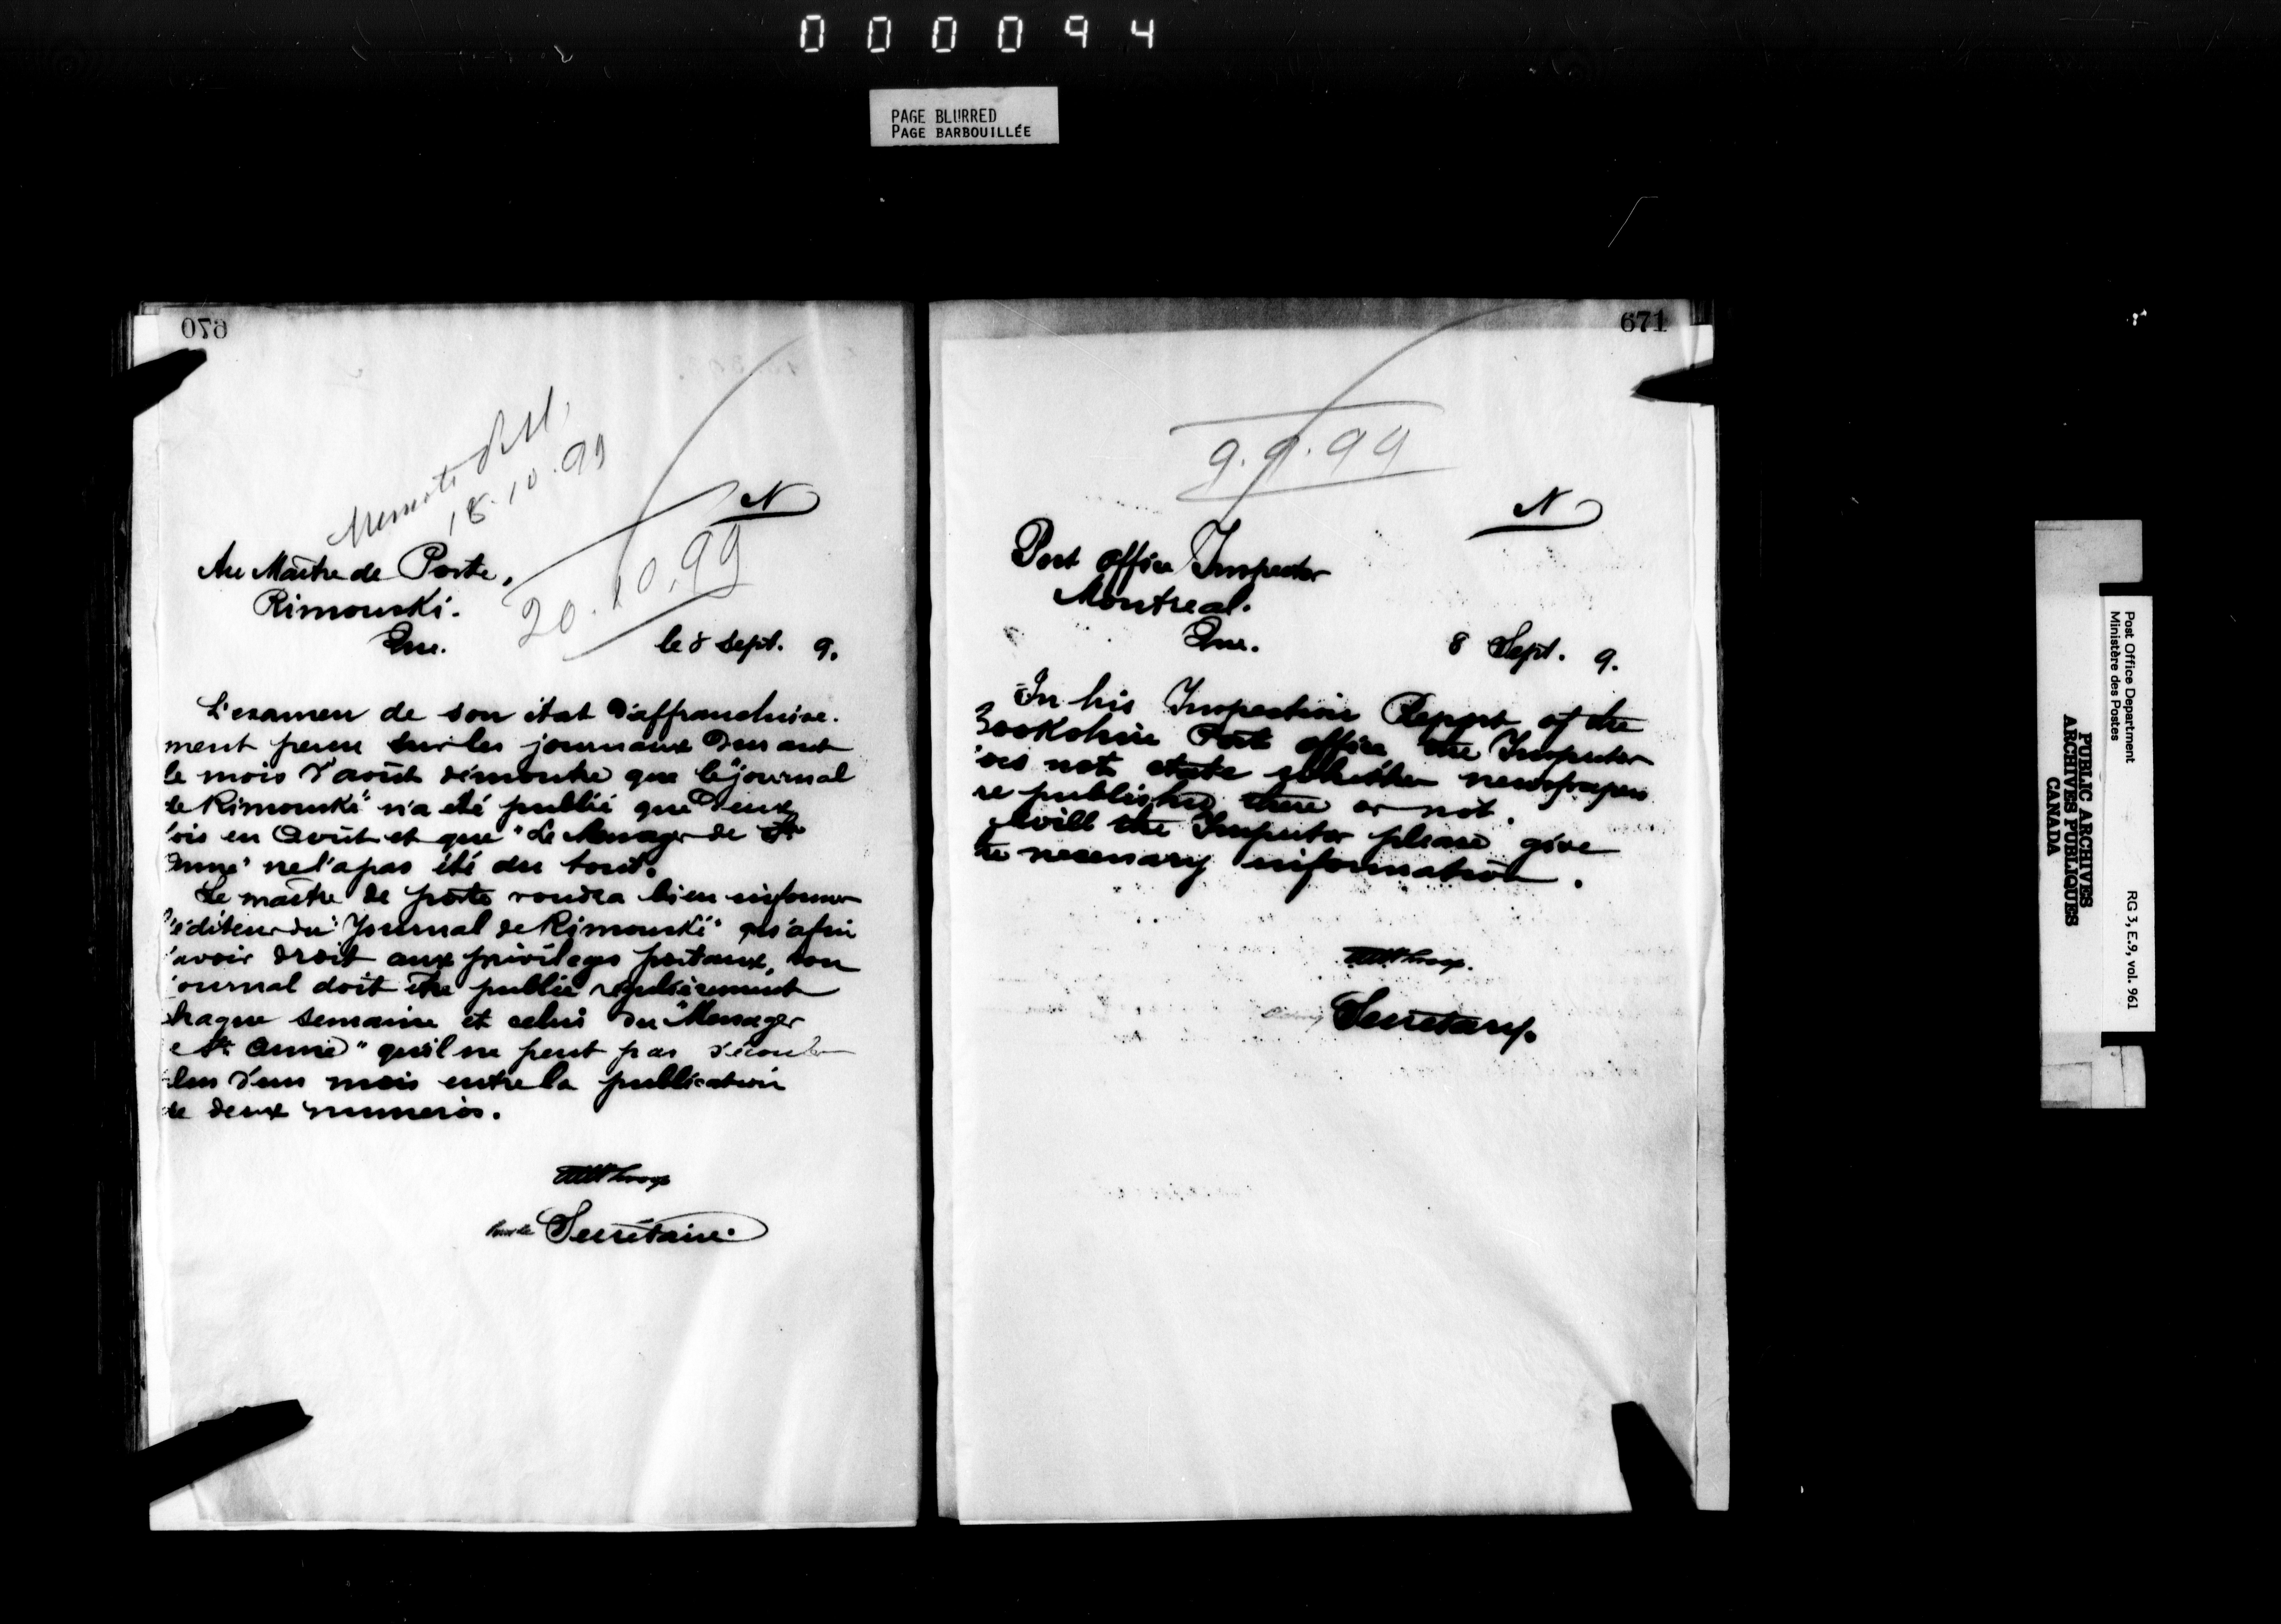 000094
PAGE BLURRED
PAGE BARBOUILLÉE
670
18.10.99
N
20.10.99
Au Maître de Poste,
Rimouski.
Que.
le 8 Sept. 9.
L'examen de son état d'affranchise-
ment perçu sur les journaux durant
le mois d'août démontre que le "journal
de Rimouski" n'a été publié que deux
ois en Août et que "Le Messager de Ste
Anne" ne l'a pas été du tout.
Le maître de poste voudra bien informer
l'éditeur du "Journal de Rimouski" qu'afin
'avoir droit aux privilèges postaux, son
ournal doit être publié régulièrement
haque semaine et celui du "Messager
e Ste Anne" qu'il ne peut pas s'écouler
lus d'un mois entre la publication
de deux numéros.
Pour le Secrétaire
671
9.9.99
N
Post Office Inspector
Montreal.
Que.
8 Sept. 9.
In his Inspection Report of the
Cookshire Post Office the Inspector
oes not state whether newspapers
re published there or not.
Will the Inspector please give
the necessary information.
Secretary.
Post Office Department
Ministère des Postes
RG 3, E.9, vol. 961
PUBLIC ARCHIVES
ARCHIVES PUBLIQUES
CANADA